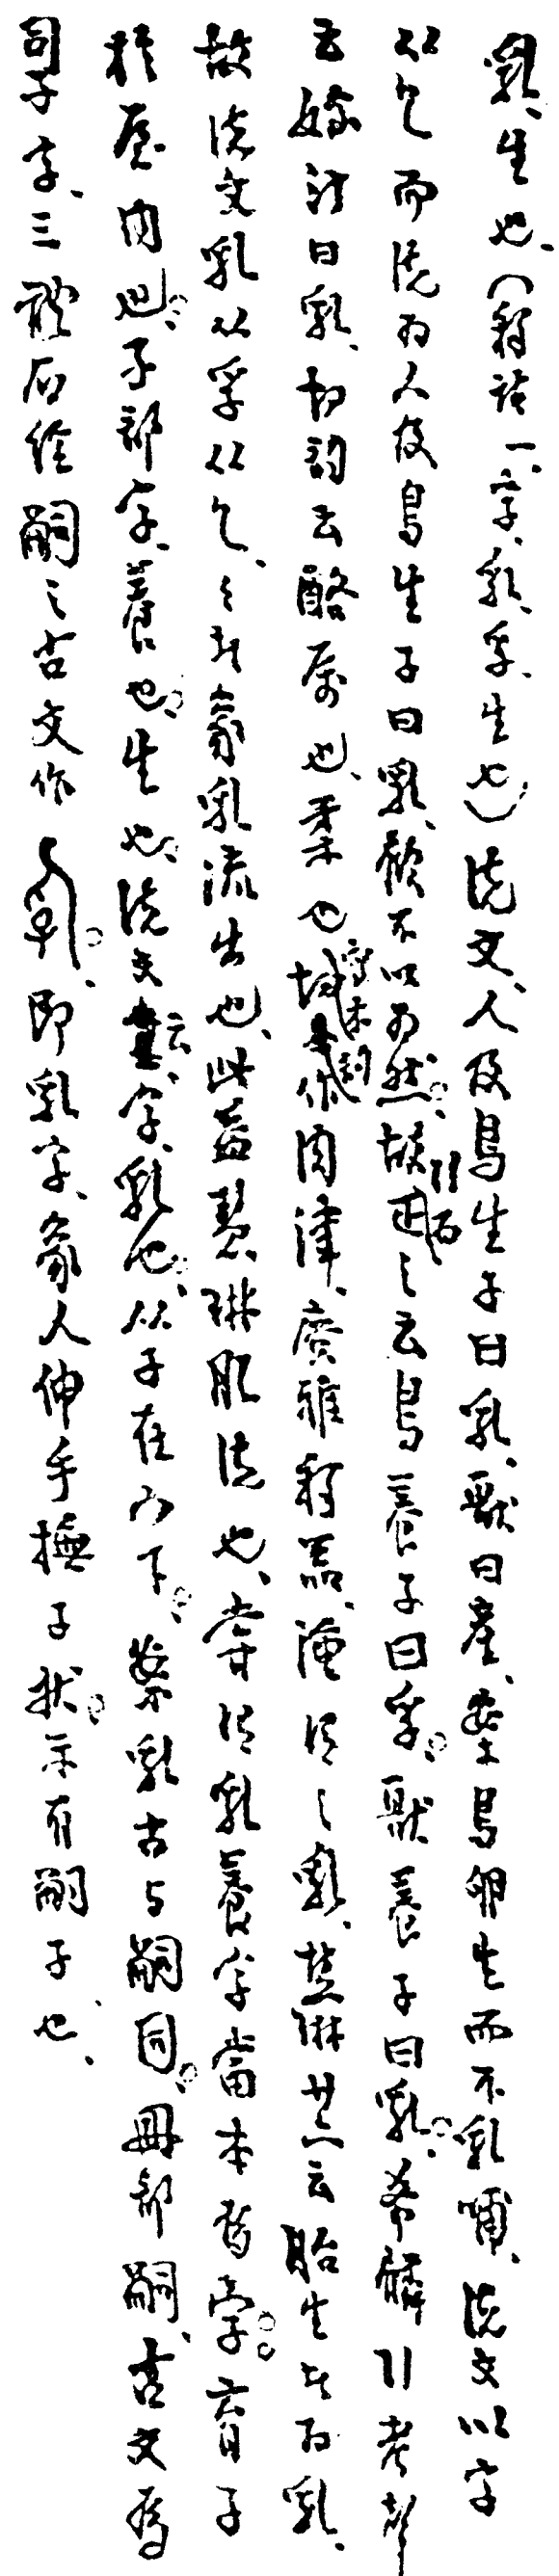 乳、生也、（釋詁一、字、乳、孚、生也）說文、人及鳥生子曰乳、獸曰產、案鳥卵生而不乳哺、說文以字
从乙而說为人及鳥生子曰乳、顧不以为然。故引而之云鳥養子曰孚。獸養子曰乳。希麟引考聲
云嫁汁曰乳、切韵云酪屬也、柔也字术韵作肉津、廣雅釋器、湩谓之乳、慧琳廿六云胎生者为乳、
故說文乳从孚从乙、乙者象乳流出也、此益慧琳肊說也、字谓乳養字當本旨字。育子
於屋内也。子部字、養也。生也。說文叙云、字、乳也。从子在宀下。案乳古与嗣同。冊部嗣、古文为
司子字、三體石经嗣之古文作、即乳字、象人伸手撫子狀。示有嗣子也、